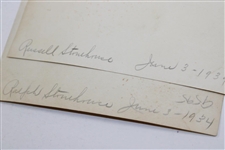 Russell Stonehouse June 3-1934
S6SB
Ralph Stonehouse June 3-1934